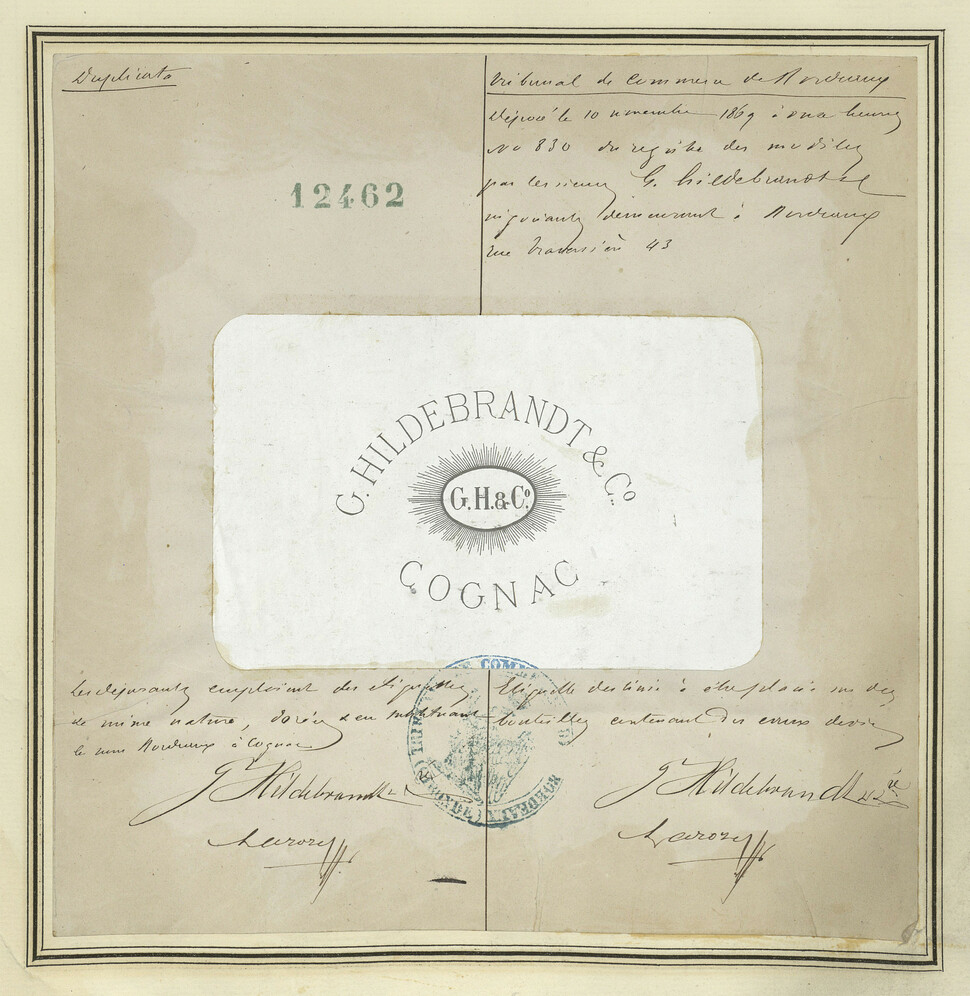 Duplicata
12462
Tribunal de Commerce de Bordeaux
Déposé le 10 novembre 1869 à onze heures
No 830 du registre des modèles
par les sieurs G. Hildebrandt &
négociants demeurant à Bordeaux
rue Traversière 43
G. HILDEBRANDT & Co.
G.H.&Co.
COGNAC
Les déposants emploient des étiquettes
de même nature, dorées & en substituant
le nom Bordeaux à Cognac
Etiquette destinée à être placée sur des
bouteilles contenant des eaux de vie
G. Hildebrandt
G. Hildebrandt & Cie
BORDEAUX